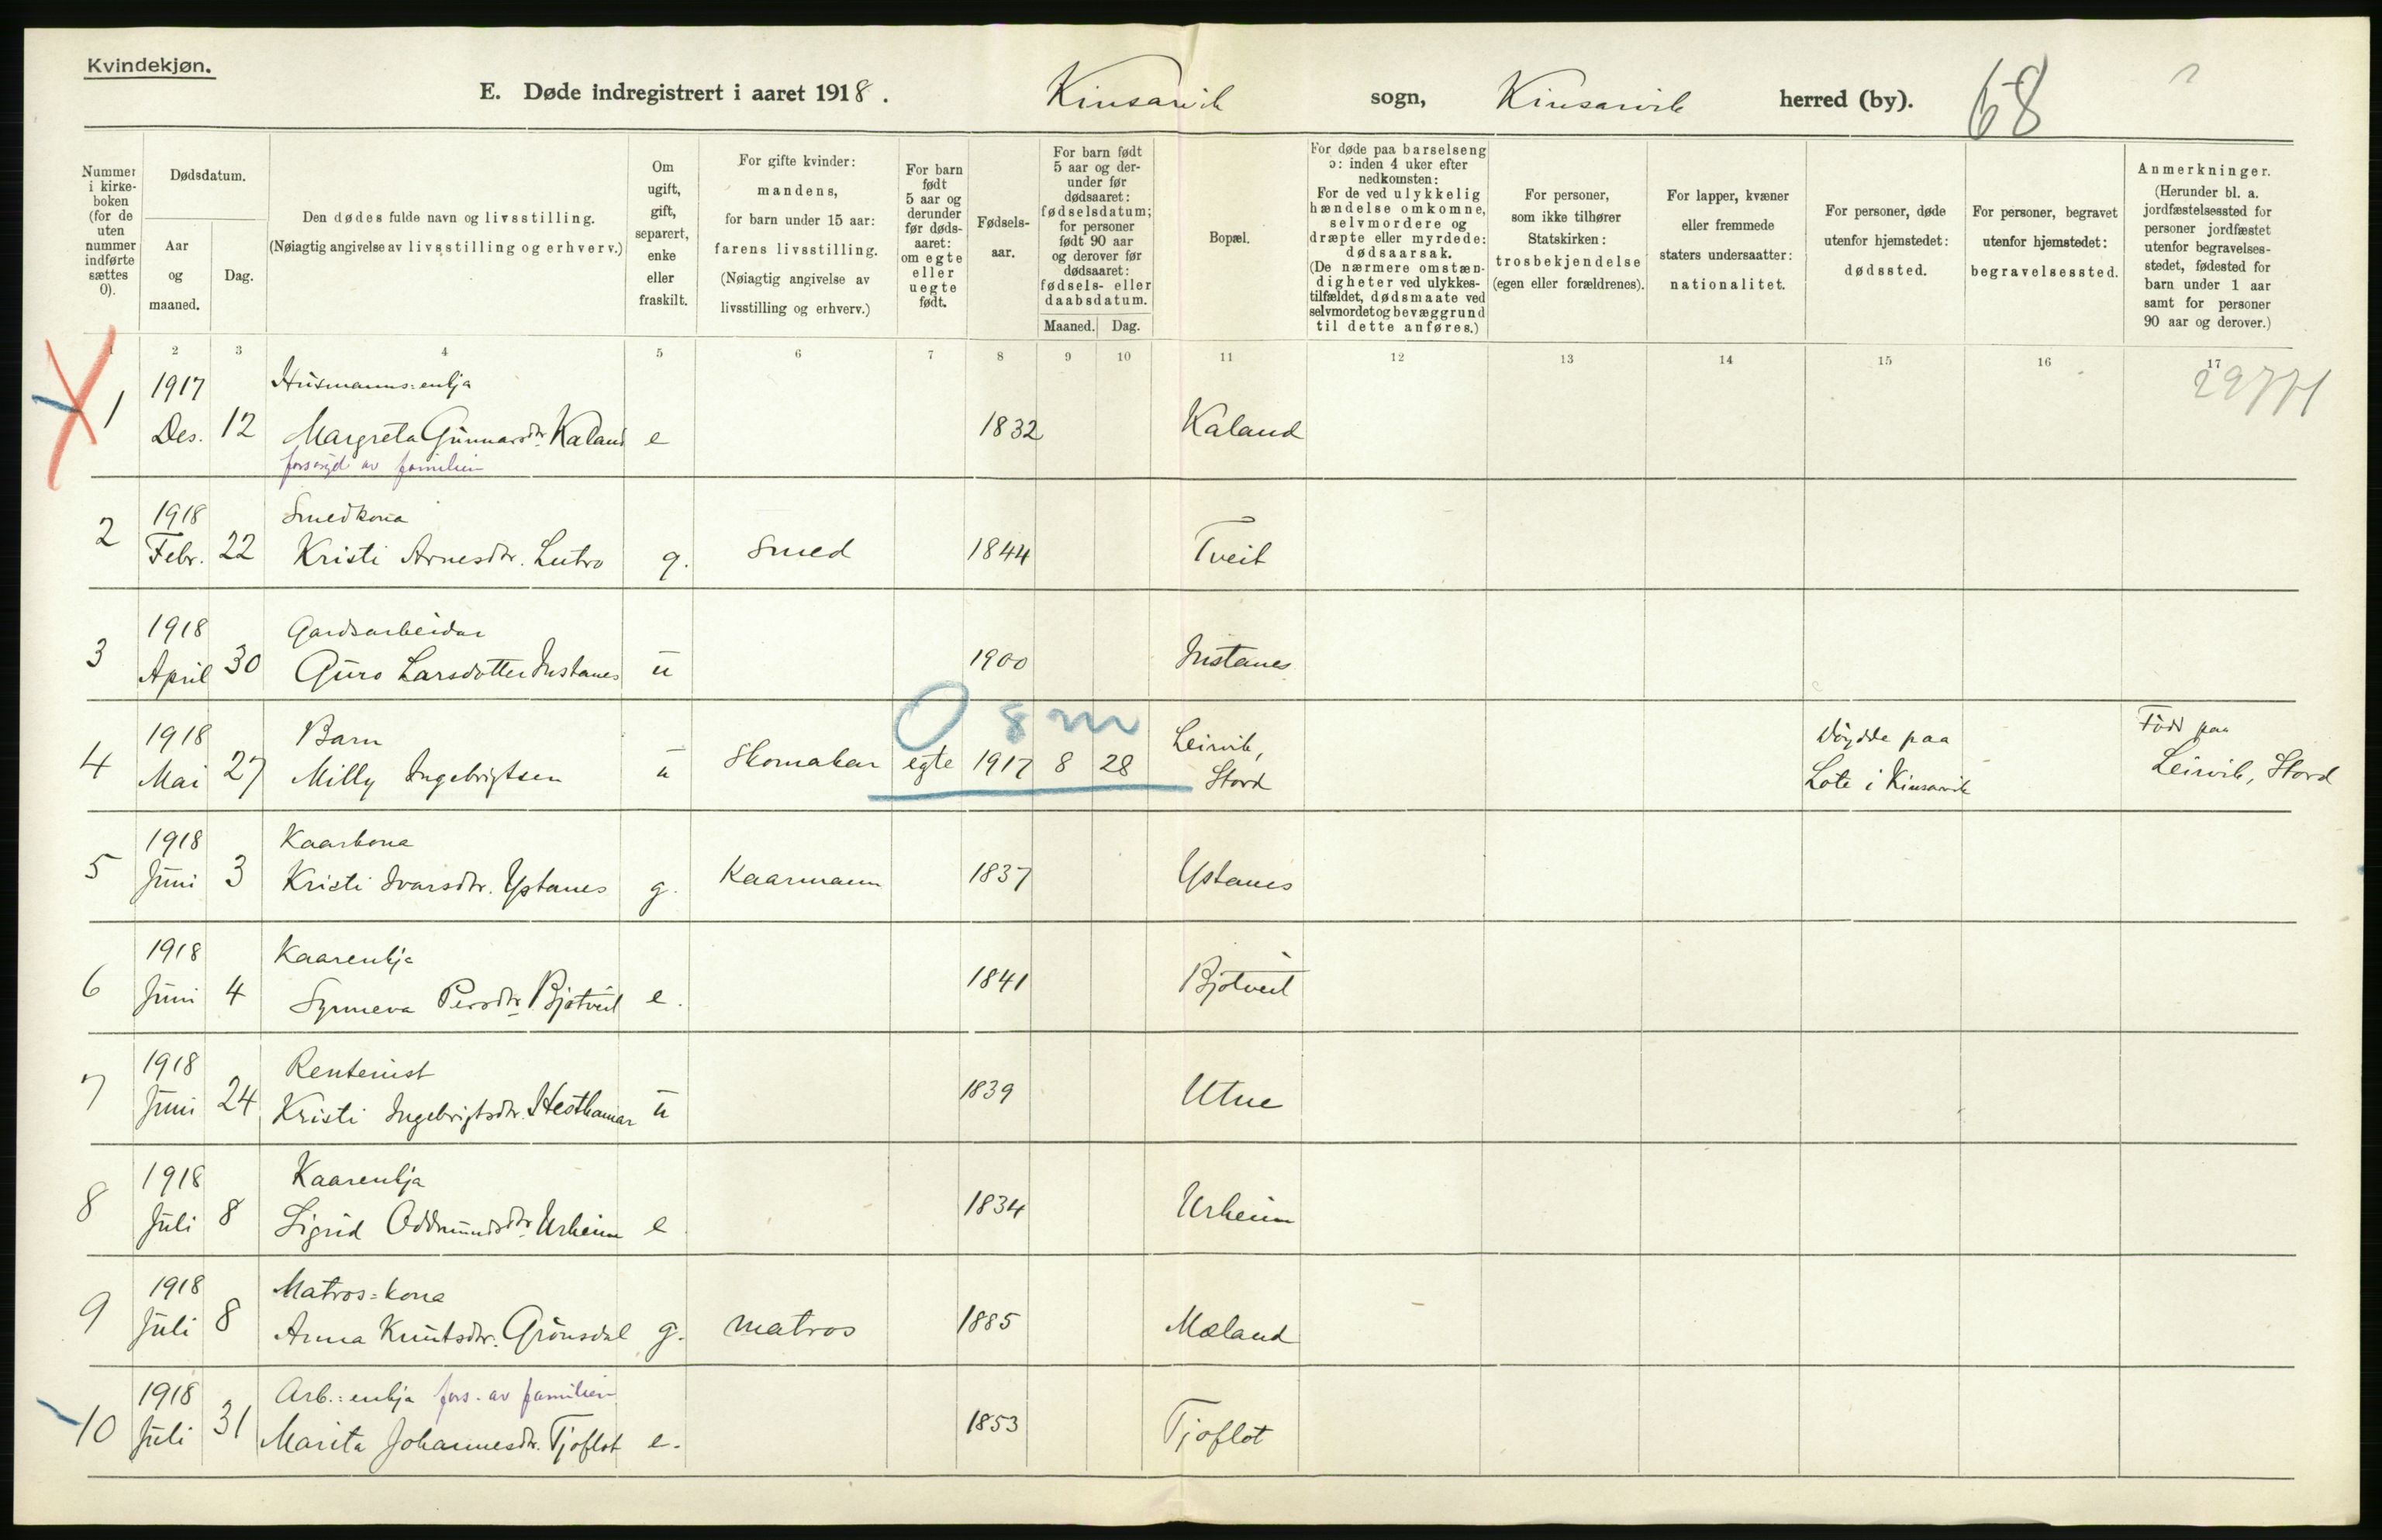 Kvindekjøn.
E. Døde indregistrert i aaret 1918. Kinsarvik sogn, Kinsarvik herred (by). 68
Nummer i kirke- boken (for de uten nummer indførte sættes 0).
Dødsdatum.
Aar og maaned.
Dag.
Den dødes fulde navn og livsstilling.
(Nøiagtig angivelse av livsstilling og erhverv.)
Om ugift, gift, separert, enke eller fraskilt.
For gifte kvinder: mandens, for barn under 15 aar: farens livsstilling. (Nøiagtig angivelse av livsstilling og erhverv.)
For barn født 5 aar og derunder før døds- aaret: om egte eller uegte født.
Fødsels- aar.
For barn født 5 aar og der- under før dødsaaret: fødselsdatum; for personer født 90 aar og derover før dødsaaret: fødsels- eller daabsdatum.
Maaned. Dag.
Bopæl.
For døde paa barselseng ɔ: inden 4 uker efter nedkomsten: For de ved ulykkelig hændelse omkomne, selvmordere og dræpte eller myrdede: dødsaarsak. (De nærmere omstæn- digheter ved ulykkes- tilfældet, dødsmaate ved selvmordet og bevæggrund til dette anføres.)
For personer, som ikke tilhører Statskirken: trosbekjendelse (egen eller forældrenes).
For lapper, kvæner eller fremmede staters undersaatter: nationalitet.
For personer, døde utenfor hjemstedet: dødssted.
For personer, begravet utenfor hjemstedet: begravelsessted.
Anmerkninger. (Herunder bl. a. jordfæstelsessted for personer jordfæstet utenfor begravelses- stedet, fødested for barn under 1 aar samt for personer 90 aar og derover.)
1 2 3 4 5 6 7 8 9 10 11 12 13 14 15 16 17
1917 Husmanns=enkja
1 Des. 12 Margreta Gunnarsdtr. Kaland e 1832 Kaland
forsørgd av familien
1918 Smedkona
2 Febr. 22 Kristi Arnesdtr. Lutro g. Smed 1844 Tveit
1918 Gardsarbeidar
3 April 30 Guro Larsdotter Instanes u 1900 Instanes
0 8 m
1918 Barn Leirvik, Döydde paa Född paa
4 Mai 27 Milly Ingebrigtsen u Skomakar egte 1917 8 28 Stord Lote i Kinsarvik Leirvik, Stord
1918 Kaarkona
5 Juni 3 Kristi Ivarsdtr. Ystanes g. Kaarmann 1837 Ystanes
1918 Kaarenkja
6 Juni 4 Synneva Persdtr. Bjotveit e. 1841 Bjotveit
1918 Rentenist
7 Juni 24 Kristi Ingebrigtsdtr. Hesthamar u 1839 Utne
1918 Kaarenkja
8 Juli 8 Sigrid Oddmundsdtr. Urheim e 1834 Urheim
1918 Matros=kona
9 Juli 8 Anna Knutsdtr. Grönsdal g. matros 1885 Mæland
1918 Arb.=enkja fors. av familien
10 Juli 31 Marita Johannesdtr. Tjoflot e. 1853 Tjoflot